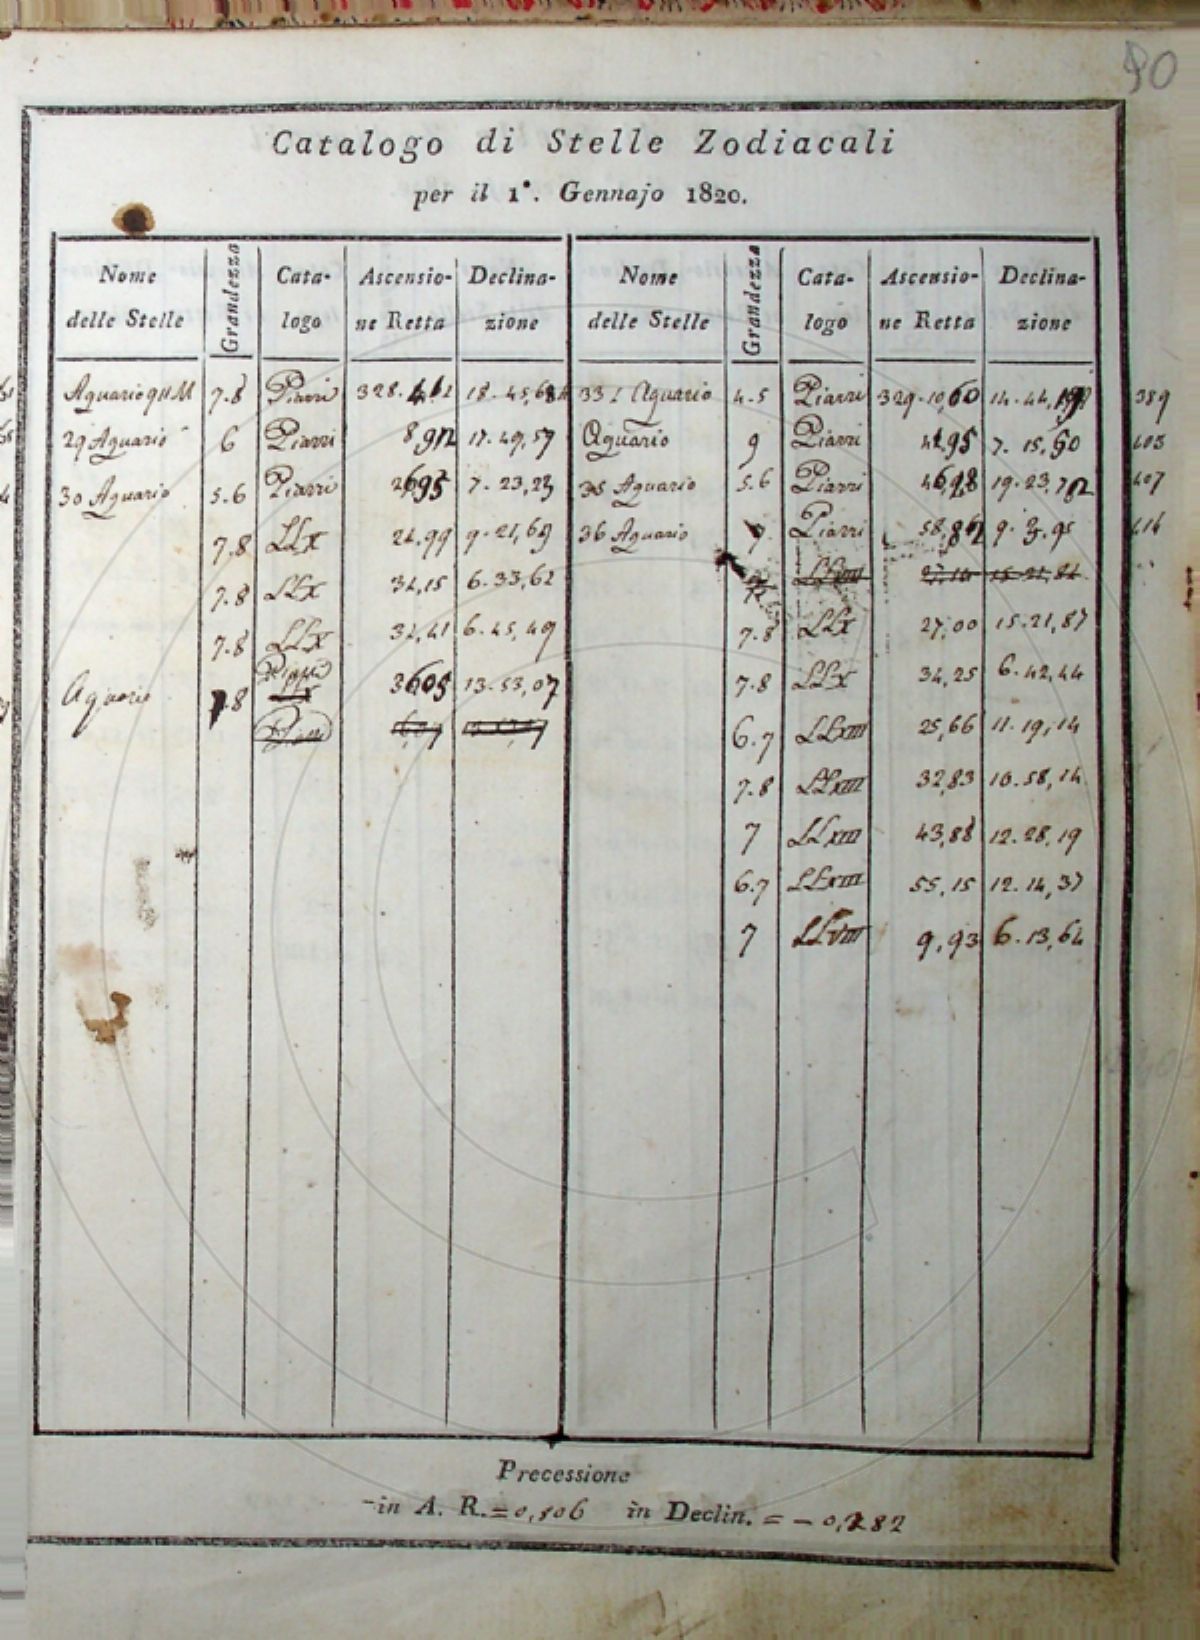 90
Catalogo di Stelle Zodiacali
per il 1°. Gennajo 1820.
Nome delle Stelle Grandezza Cata-logo Ascensio-ne Retta Declina-zione Nome delle Stelle Grandezza Cata-logo Ascensio-ne Retta Declina-zione
Aquario 7.8 Piazzi 18.45,68 Aquario 4.5 Piazzi 329.10,60 14.44, 389
29 Aquario 6 Piazzi 8,92 17.49,57 Aquario 9 Piazzi 41,95 7.15,50 403
30 Aquario 5.6 Piazzi 2695 7.23,23 35 Aquario 5.6 Piazzi 46,98 19.23,72 407
7.8 LLX 24.99 9.21,69 36 Aquario 7. Piazzi 58,82 9.3.95 414
7.8 LLX 34,15 6.33,62 LLXIII 27,16 15.21,82
7.8 LLX 34,41 6.45,49 7.8 LLX 27,00 15.21,87
Aquario 7.8 3605 13.53,07 7.8 LLX 34,25 6.42,44
6.7 LLXIII 25,66 11.19,14
7.8 LLXIII 32,83 10.58,14
7 LLXIII 43,88 12.28,19
6.7 LLXIII 55,15 12.14,37
7 LLVIII 9,93 6.13,64
Precessione
in A. R. = 0,806 in Declin. = - 0,282